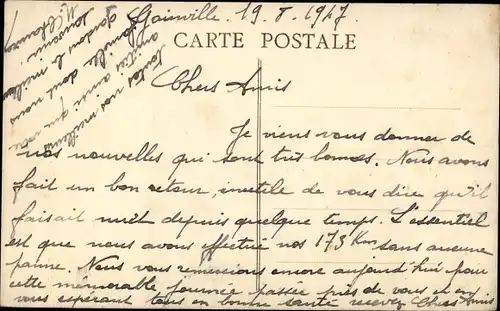 Goinville. 19.8.1947.
CARTE POSTALE
Chers Amis
Je viens vous donner de
nos nouvelles qui sont très bonnes. Nous avons
fait un bon retour, inutile de vous dire qu'il
faisait nuit depuis quelque temps. L'essentiel
est que nous avons effectué nos 173 Km sans aucune
panne. Nous vous remercions encore aujourd'hui pour
cette mémorable journée passée près de vous et en
vous espérant tous en bonne santé recevez Chers Amis
toutes nos meilleures
amitiés ainsi que votre
famille dont nous
gardons le meilleur
souvenir.